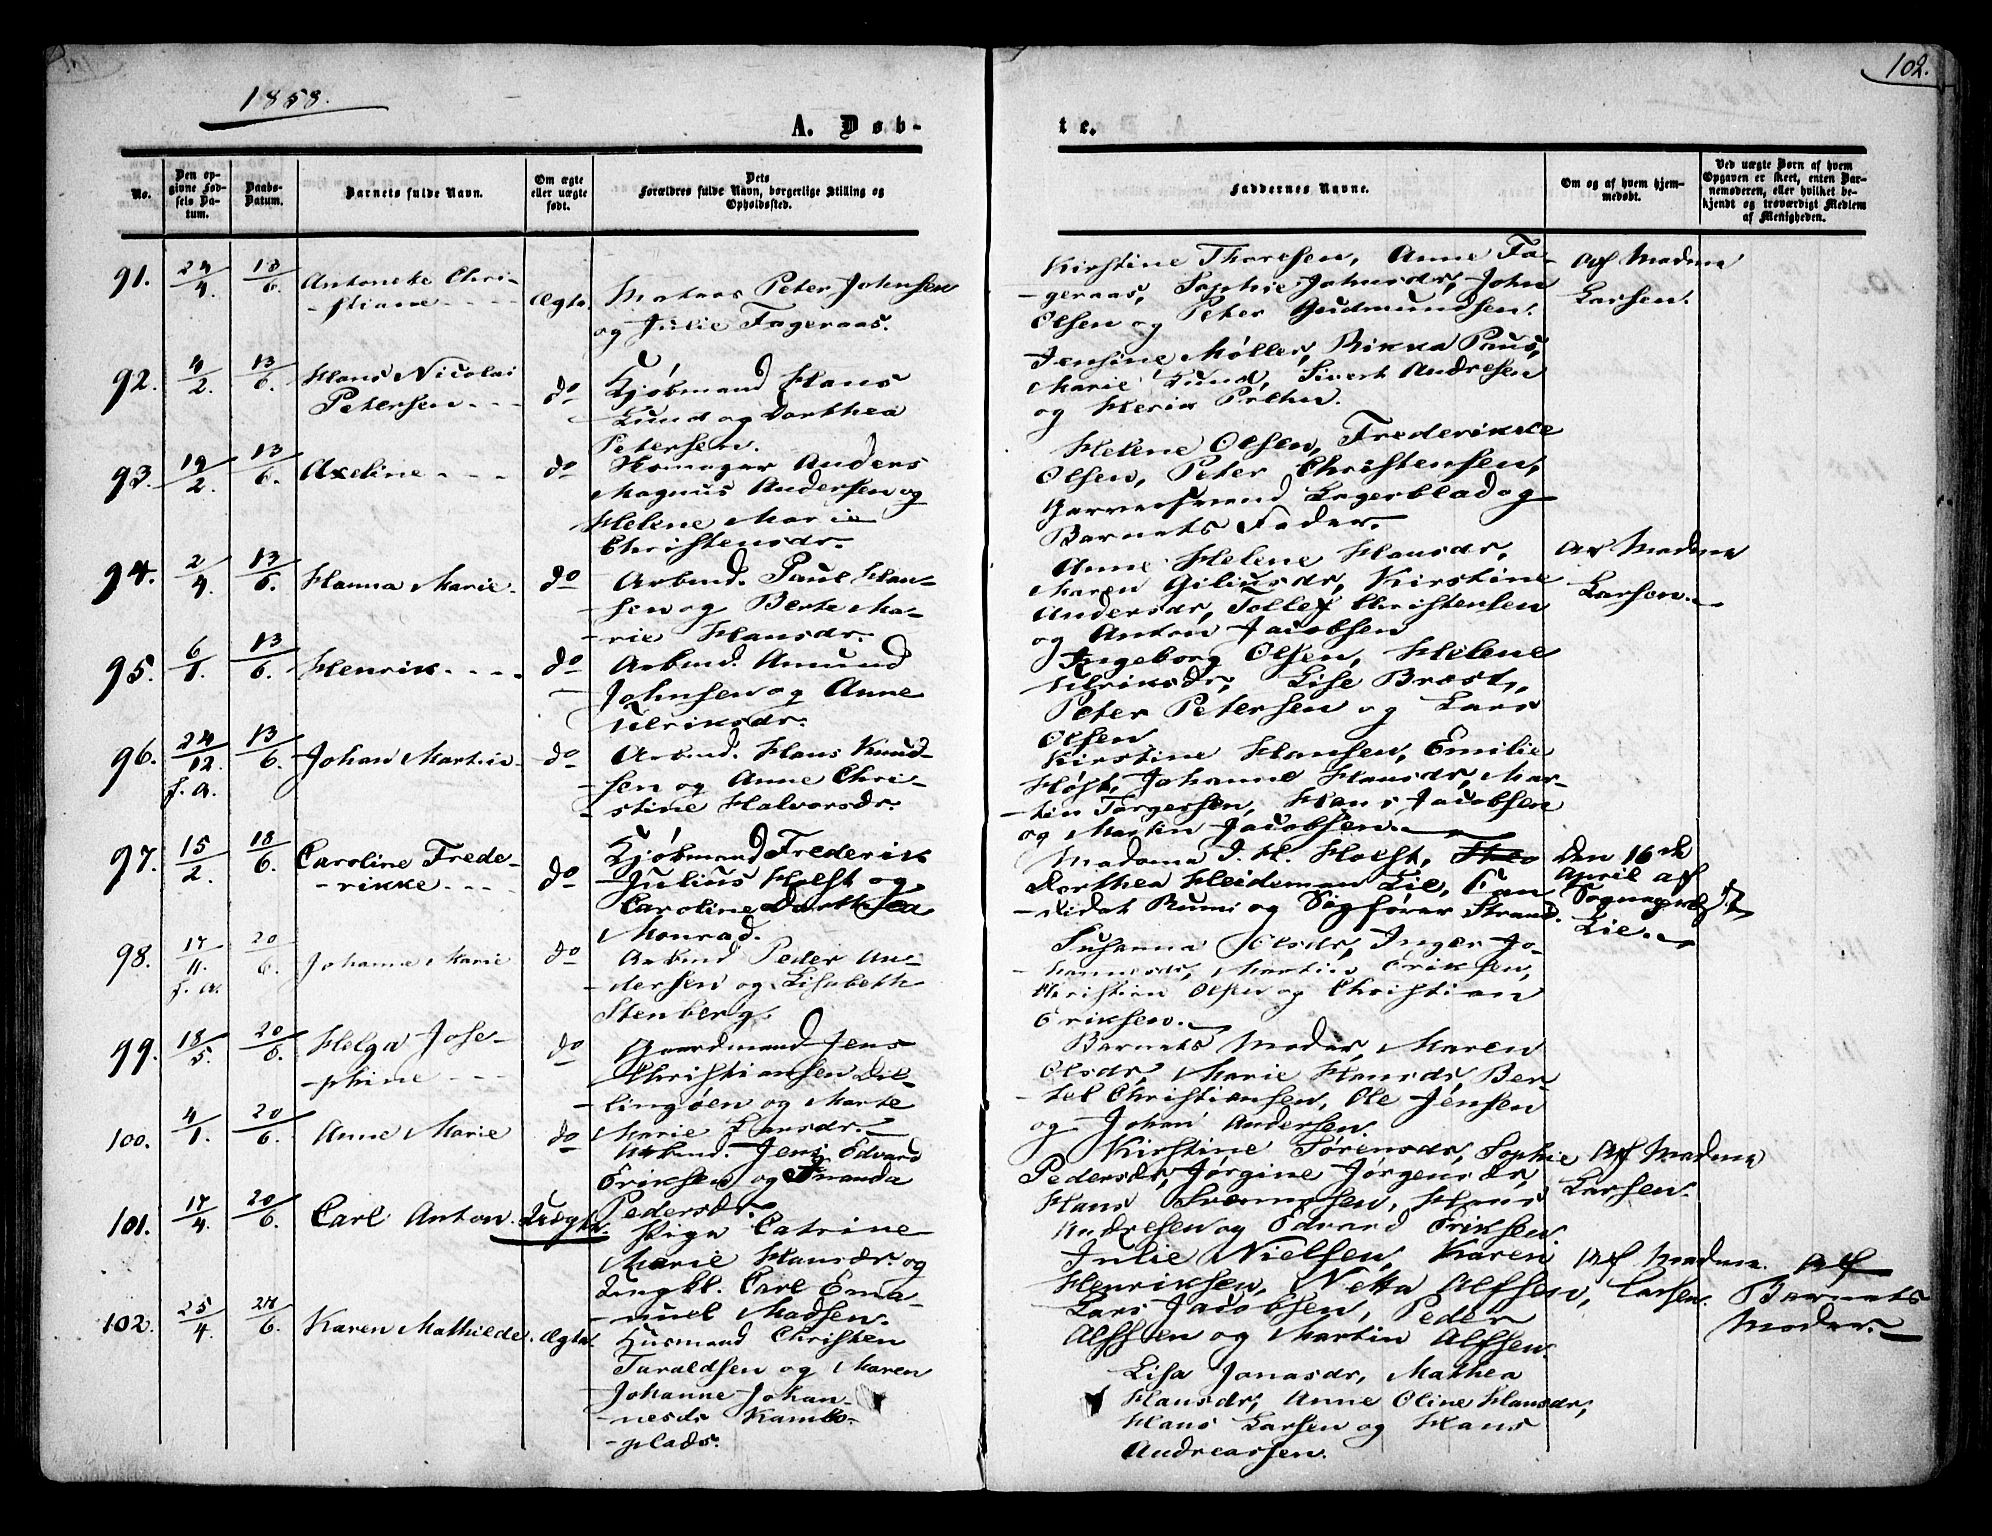 1858.
102.
A. Døb-
te.
No.
Den op-
givne Fød-
sels Da-
tum.
Daabs-
Datum.
Barnets fulde Navn.
Om ægte
eller uægte
født.
Dets
Forældres fulde Navn, borgerlige Stilling og
Opholdssted.
Faddernes Navne.
Om og af hvem hjem-
medøbt.
Ved uægte Børn af hvem
Opgaven er skeet, enten Bar-
nemoderen, eller hvilket be-
kjendt og troværdigt Medlem
af Menigheden.
91.
24/4.
13/6.
Antonette Chri-
-stiane
Ægte.
Peter Johnsen
og Julie Fageraas.
Kirstine Thoresen, Anne Fa-
-geraas, Sophie Johnsdr, John
Olsen og Peter Gudmundsen.
Af Madme
Larsen.
92.
4/2.
13/6.
Hans Nicolai
Petersen
do
Kjøbmand Hans
Lund og Dorthea
Petersen.
Jensine Møller, Rikka Paus,
Marie Lund, Sivert Andresen
og
93.
19/2.
13/6.
Axeline
do
Skomager Anders
Magnus Andersen og
Helene Marie
Christensdr.
Helene Olsen, Frederikke
Olsen, Peter Christensen,
Garversvend Lagerblad og
Barnets Fader.
94.
2/4.
13/6.
Hanna Marie.
do
Arbmd. Paul Han-
sen og Berte Ma-
-rie Hansdr.
Anne Helene Hansdr,
Maren Giliusdr, Kirstine
Andersdr, Tollef Christensen
og Anton Jacobsen
Af Madme
Larsen.
95.
6/1.
13/6.
Henrik
do
Arbmd. Amund
Johnsen og Anne
Ulriksdr.
Ingeborg Olsen, Helene
Ulriksdr, Lise Brost,
Peter Petersen og Lars
Olsen
96.
24/12.
f. A.
13/6.
Johan Martin
do
Arbmd. Hans Knud-
-sen og Anne Chri-
-stine Halvorsdr.
Kirstine Hansen, Emilie
Høst, Johanne Hansdr, Mar-
-tin Torgersen, Hans Jacobsen
og Martin Jacobsen.
97.
15/2.
18/6.
Caroline Frede-
-rikke
do
Kjøbmand Frederik
Julius Holst og
Caroline Dorthea
Monrad.
Madame J. H. Holst,
Dorthea Heideman Lie, Can-
-didat Rumi og Sagfører Strand.
Den 16de
April af
Sognepræst
Lie.
98.
17/11.
f. A.
20/6.
Johanne Marie
do
Arbmd Peder An-
-dersen og Lisabeth
Stenberg.
Susanna Olsdr, Inger Jo-
-hannesdr, Martin Eriksen,
Christian Olsen og Christian
Eriksen.
99.
18/5.
20/6.
Helga Jose-
-phine
do
Gaardmand Jens
Christiansen Dil-
-lingøen og Marte
Marie Larsdr.
Barnets Moder, Maren
Olsdr, Marie Hansdr, Ber-
-tel Christiansen, Ole Jensen
og Johan Andersen.
100.
4/1.
20/6.
Anne Marie
do
Arbmd. Jens Edvard
Eriksen og Amanda
Pedersdr.
Kirstine Sørensdr, Sophie
Pedersdr, Jørgine Jørgensdr,
Hans Svenningsen, Hans
Andresen og Edvard Eriksen.
Af Madme
Larsen.
101.
17/4.
20/6.
Carl Anton.
Uægte.
Pige Catrine
Marie Hansdr. og
Ungkl. Carl Ema-
-nuel Madsen.
Julie Nielsen, Karen
Henriksen, Netta Alfsen,
Lars Jacobsen, Peder
Alfsen og Martin Alfsen.
Af Madme
Larsen.
Af
Barnets
Moder.
102.
25/4.
24/6.
Karen Mathilde.
Ægte.
Husmand Christen
Taraldsen og Maren
Johanne Johan-
-nesdr Kambo-
-plads.
Lisa Jonasdr, Mathea
Hansdr, Anne Oline Hansdr,
Hans Larsen og Hans
Andreassen.